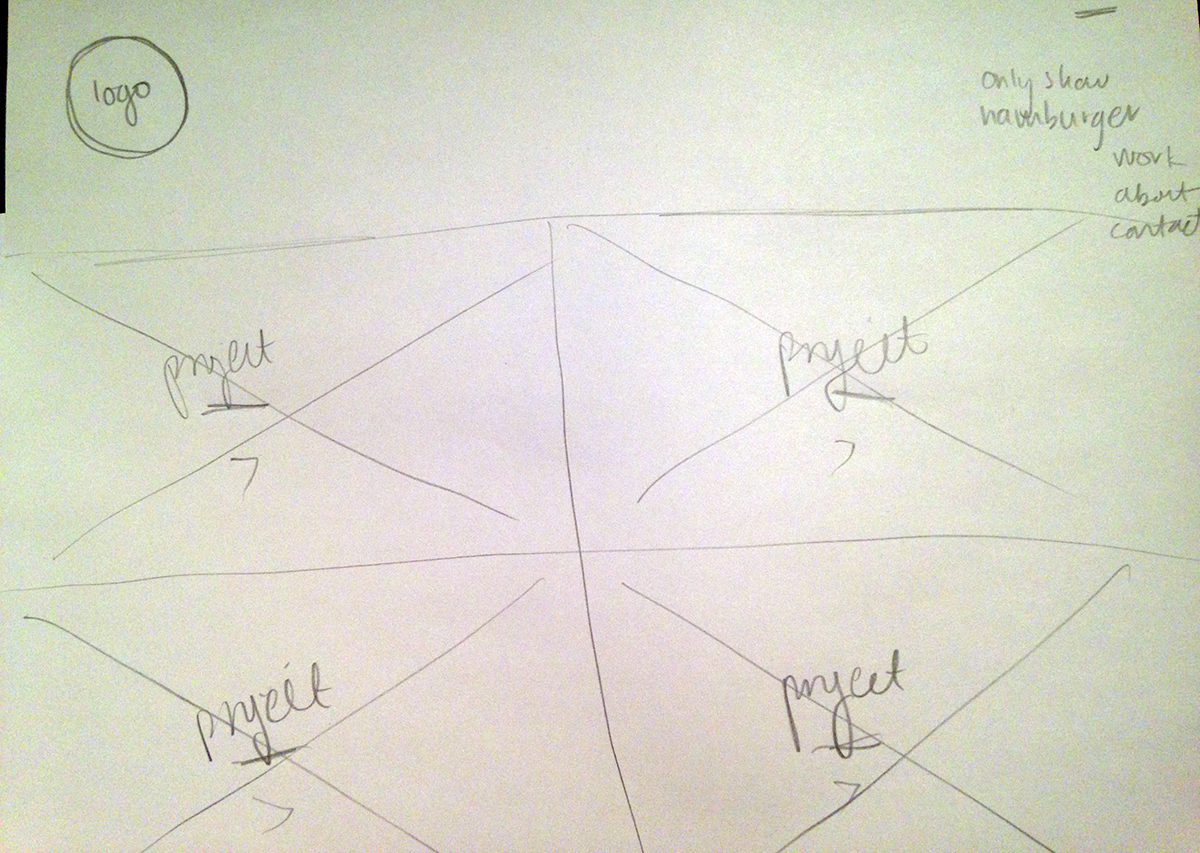 logo
only show
hamburger
work
about
contact
project
project
project
project